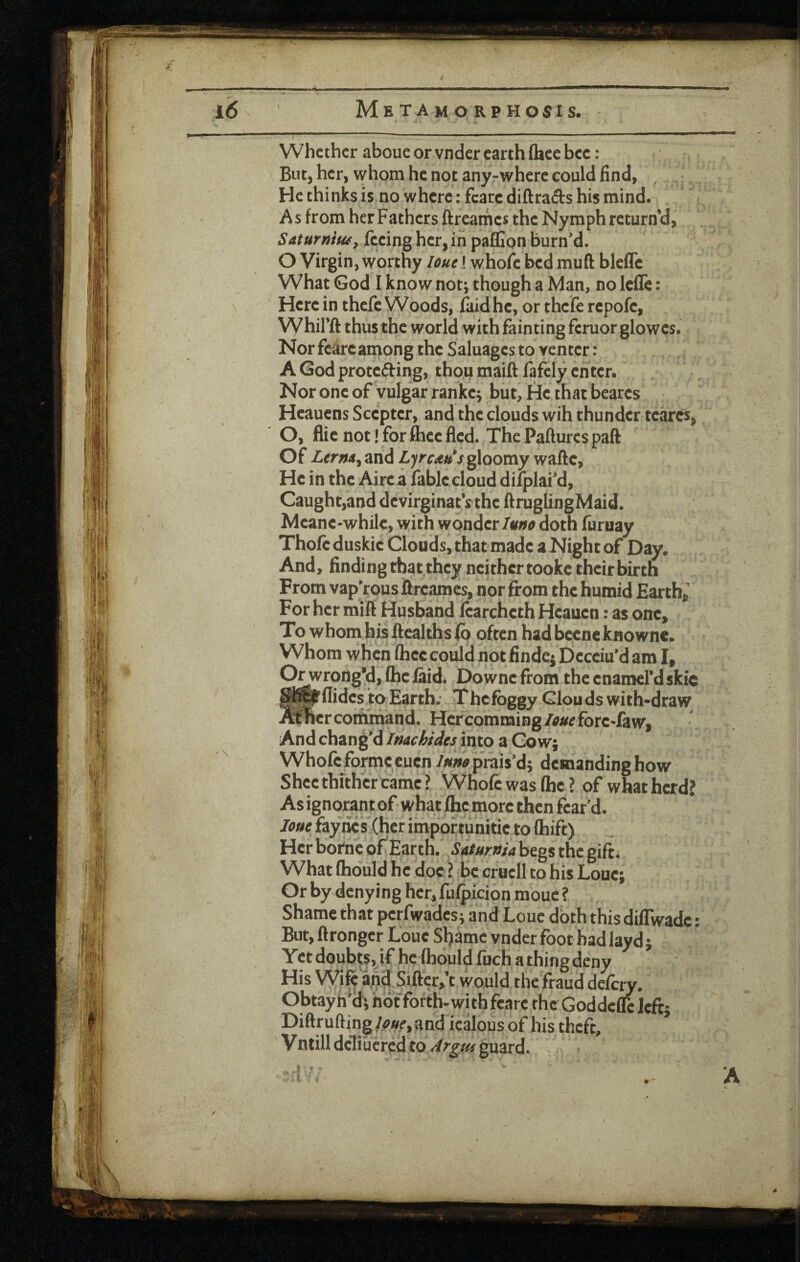 16 METAMORPHOSIS.
Whether aboue or vnder earth ſhee bee:
But, her, whom he not any-where could find,
He thinks is no where: feare diſtracts his mind.
As from her Fathers ſtreames the Nymph return'd,
Saturnius, ſeeing her, in paſſion burn'd.
O Virgin, worthy Ioue! whoſe bed muſt bleſſe
What God I know not; though a Man, no leſſe:
Here in theſe Woods, ſaid he, or theſe repoſe,
Whil'ſt thus the world with fainting feruor glowes.
Nor feare among the Saluages to venter:
A God protecting, thou maiſt ſafely enter.
Nor one of vulgar ranke; but, He that beares
Heauens Scepter, and the clouds wih thunder teares,
O, flie not! for ſhee fled. The Paſtures paſt
Of Lerna, and Lyrcæu's gloomy waſte,
He in the Aire a ſable cloud diſplai'd,
Caught, and devirginat's the ſtrugling Maid.
Meane-while, with wonder Iuno doth ſuruay
Thoſe duskie Clouds, that made a Night of Day.
And, finding that they neither tooke their birth
From vap'rous ſtreames, nor from the humid Earth,
For her miſt Husband ſearcheth Heauen: as one,
To whom his ſtealths ſo often had beene knowne.
Whom when ſhee could not finde; Deceiu'd am I,
Or wrong'd, ſhe ſaid. Downe from the enamel'd skie
ſlides to Earth. The foggy Clouds with-draw
At her command. Her comming Ioue fore-ſaw,
And chang'd Inachides into a Cow;
Whoſe forme euen Iuno prais'd; demanding how
Shee thither came? Whoſe was ſhe? of what herd?
As ignorant of what ſhe more then fear'd.
Ioue faynes (her importunitie to ſhift)
Her borne of Earth. Saturnia begs the gift.
What ſhould he doe? be cruell to his Loue;
Or by denying her, ſuſpicion moue?
Shame that perſwades; and Loue doth this diſſwade:
But, ſtronger Loue Shame vnder foot had layd;
Yet doubts, if he ſhould ſuch a thing deny
His Wife and Siſter,'t would the fraud deſcry.
Obtayn'd; not forth-with feare the Goddeſſe left;
Diſtruſting Ioue, and iealous of his theft,
Vntill deliuered to Argus guard.
A